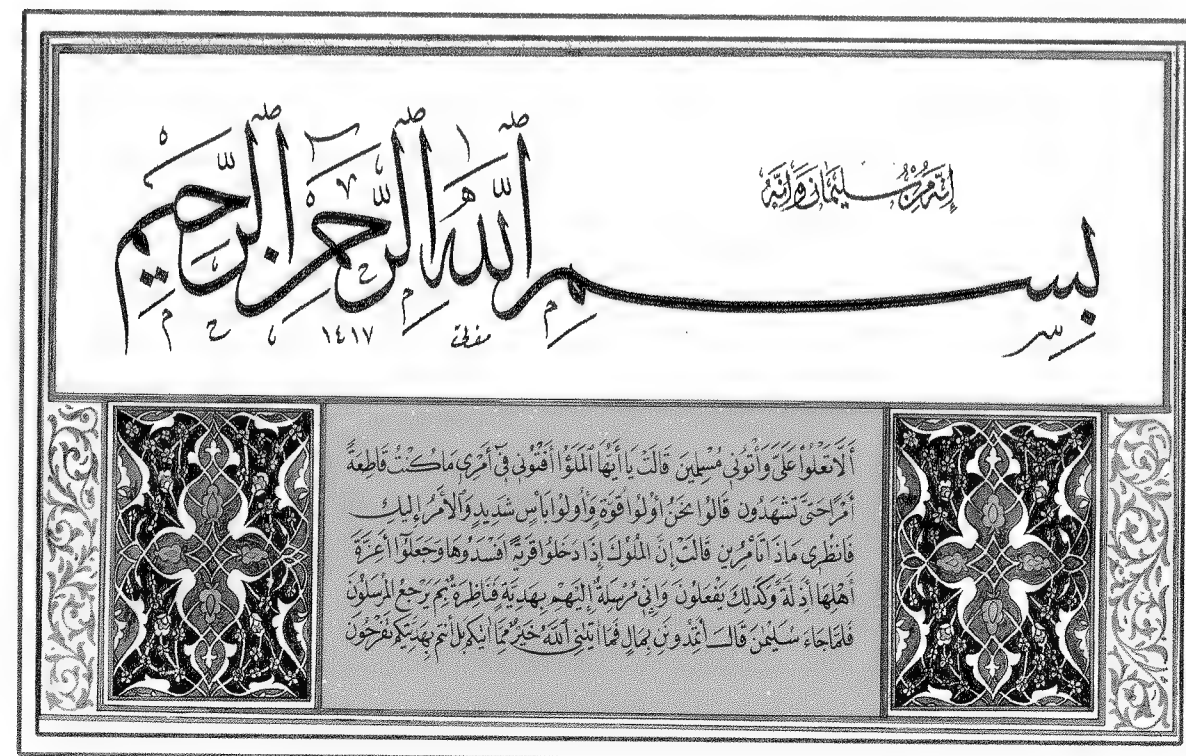 إِنَّهُ مِنْ سُلَيْمَانَ وَإِنَّهُ
بِسْمِ ٱللَّهِ ٱلرَّحْمَٰنِ ٱلرَّحِيمِ
١٤١٧
أَلَّا تَعْلُوا عَلَيَّ وَأْتُونِي مُسْلِمِينَ قَالَتْ يَا أَيُّهَا ٱلْمَلَؤُا أَفْتُونِي فِي أَمْرِي مَا كُنْتُ قَاطِعَةً
أَمْرًا حَتَّى تَشْهَدُونِ قَالُوا نَحْنُ أُولُوا قُوَّةٍ وَأُولُوا بَأْسٍ شَدِيدٍ وَٱلْأَمْرُ إِلَيْكِ
فَانْظُرِي مَاذَا تَأْمُرِينَ قَالَتْ إِنَّ الْمُلُوكَ إِذَا دَخَلُوا قَرْيَةً أَفْسَدُوهَا وَجَعَلُوا أَعِزَّةَ
أَهْلِهَا أَذِلَّةً وَكَذَلِكَ يَفْعَلُونَ وَإِنِّي مُرْسِلَةٌ إِلَيْهِمْ بِهَدِيَّةٍ فَنَاظِرَةٌ بِمَ يَرْجِعُ الْمُرْسَلُونَ
فَلَمَّا جَاءَ سُلَيْمٰنَ قَالَ أَتُمِدُّونَنِ بِمَالٍ فَمَا آتٰىنِيَ ٱللَّهُ خَيْرٌ مِمَّا آتٰىكُمْ بَلْ أَنْتُمْ بِهَدِيَّتِكُمْ تَفْرَحُونَ